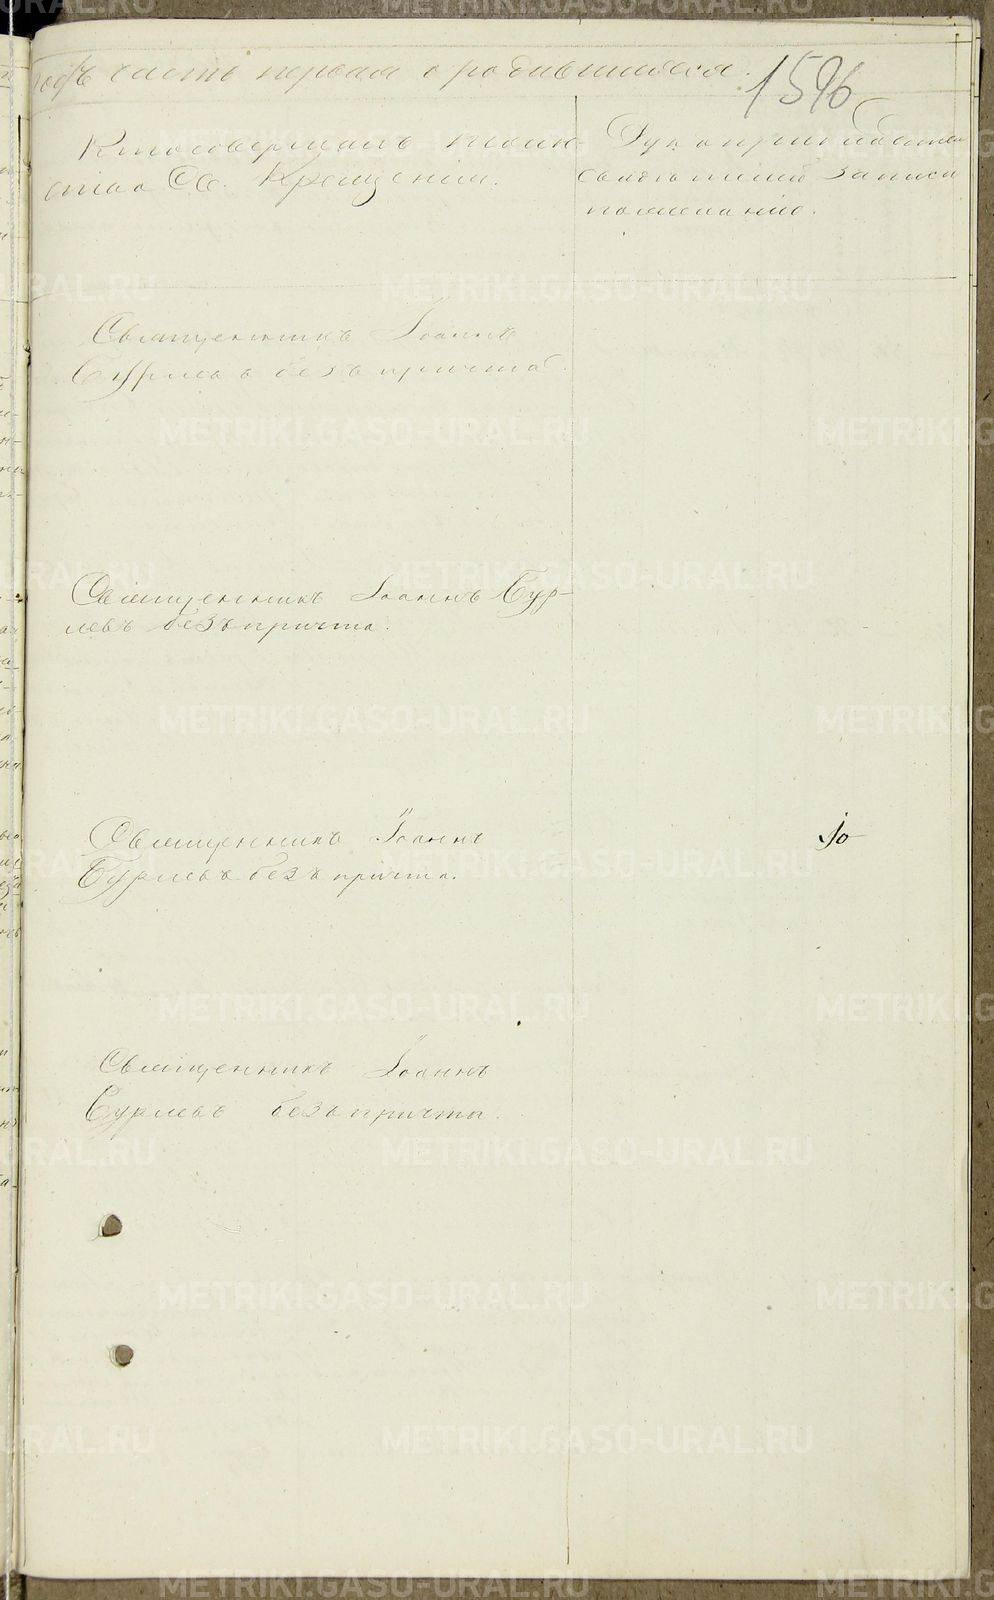 годъ часть первая о родившихся.
1596
Кто совершалъ таин-
ство Св. Крещенія.
Рукоприкладство
свидѣтелей записи
по желанію.
Священникъ Іоаннъ
Бурлевъ безъ причта.
Священникъ Іоаннъ Бур-
левъ безъ причта.
Священникъ Іоаннъ
Бурлевъ безъ причта.
Священникъ Іоаннъ
Бурлевъ безъ причта.
METRIKI.GASO-URAL.RU